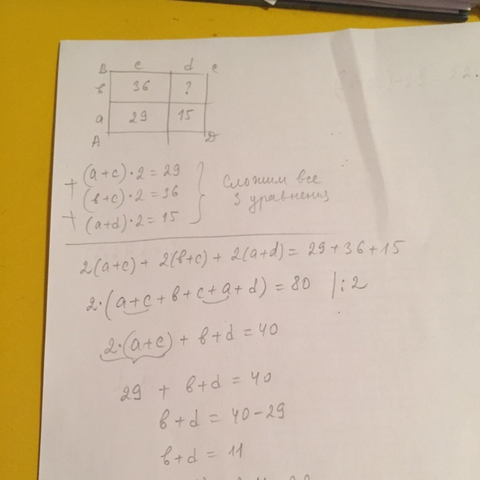 B c d C
b 36 ?
a 29 15
A D
(a+c)·2=29
+ (b+c)·2=36
+ (a+d)·2=15
Сложим все
3 уравнения
2(a+c)+2(b+c)+2(a+d)=29+36+15
2·(a+c+b+c+a+d)=80 |:2
2·(a+c)+b+d=40
29 + b+d=40
b+d=40-29
b+d=11